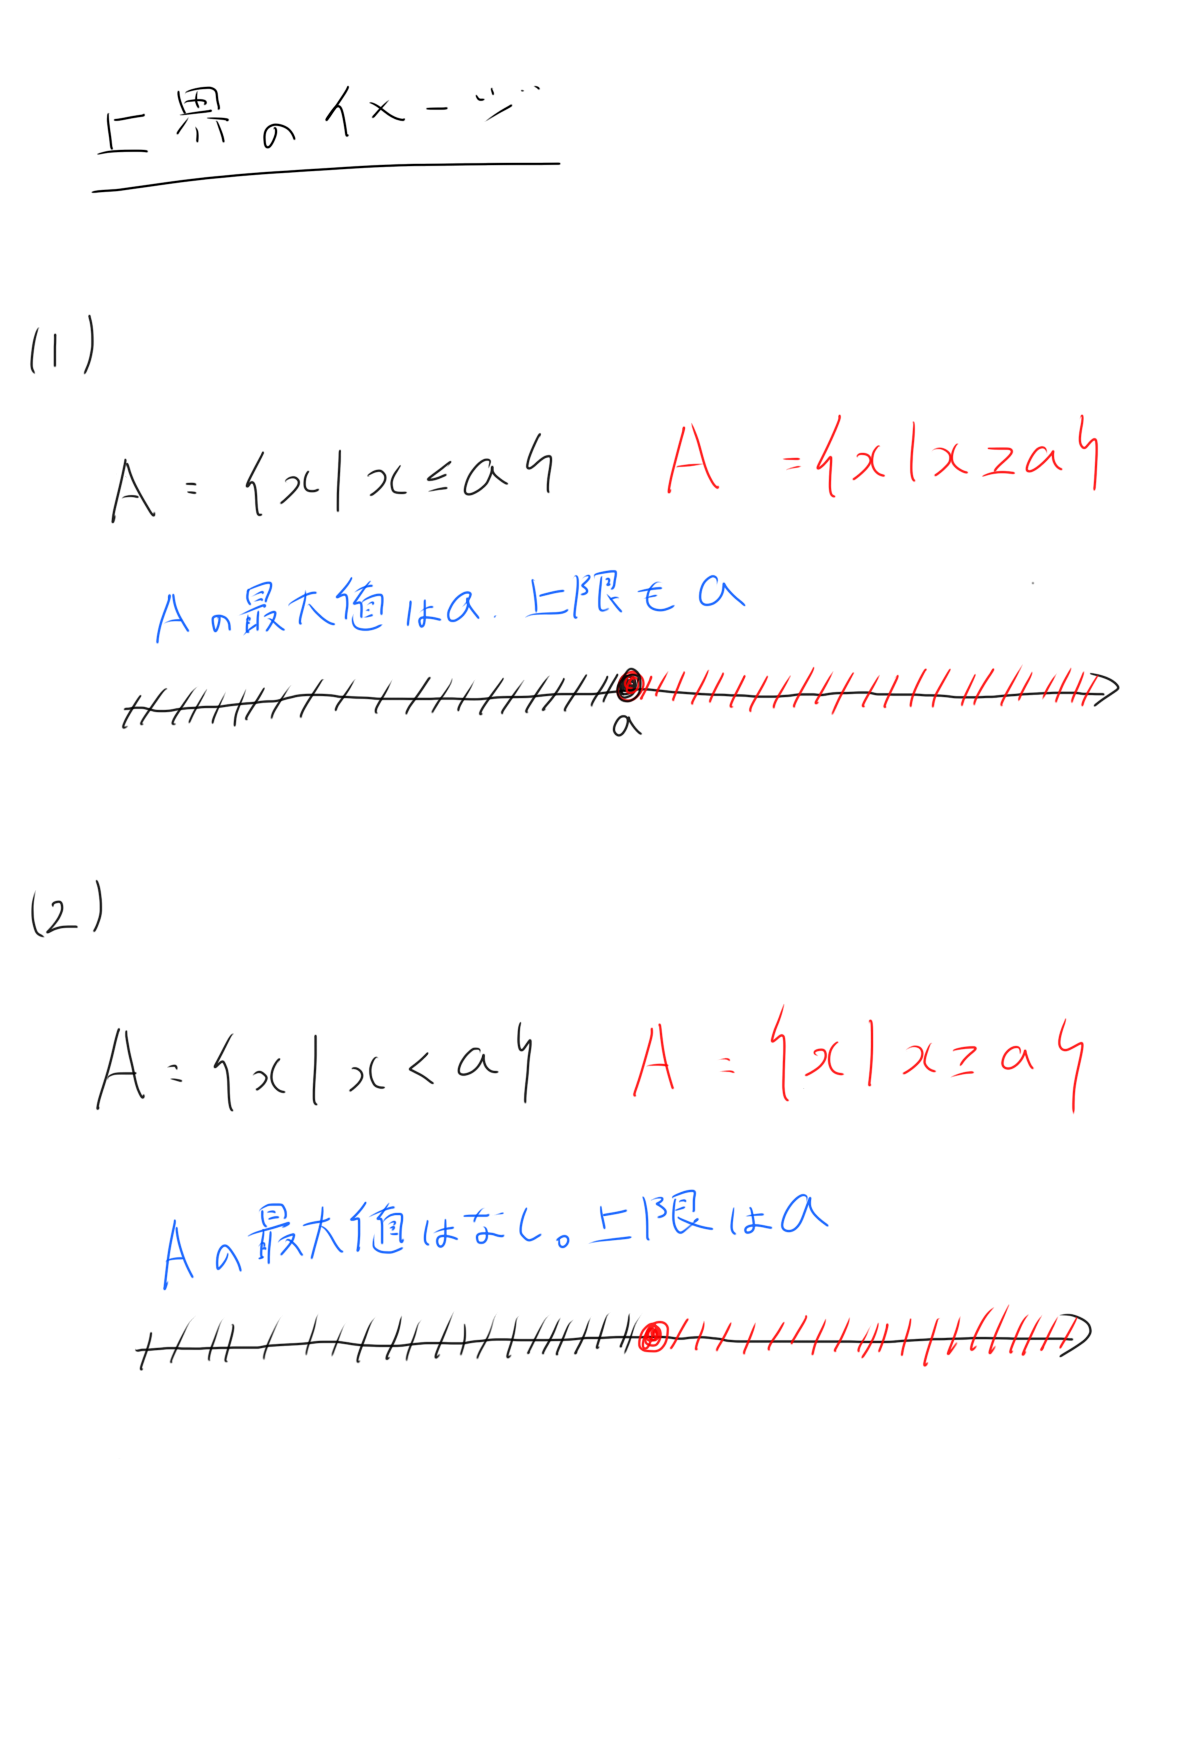 上界のイメージ
(1)
A = {x | x ≤ a} A = {x | x ≥ a}
Aの最大値はa. 上限もa
a
(2)
A = {x | x < a} A = {x | x ≥ a}
Aの最大値はなし。上限はa